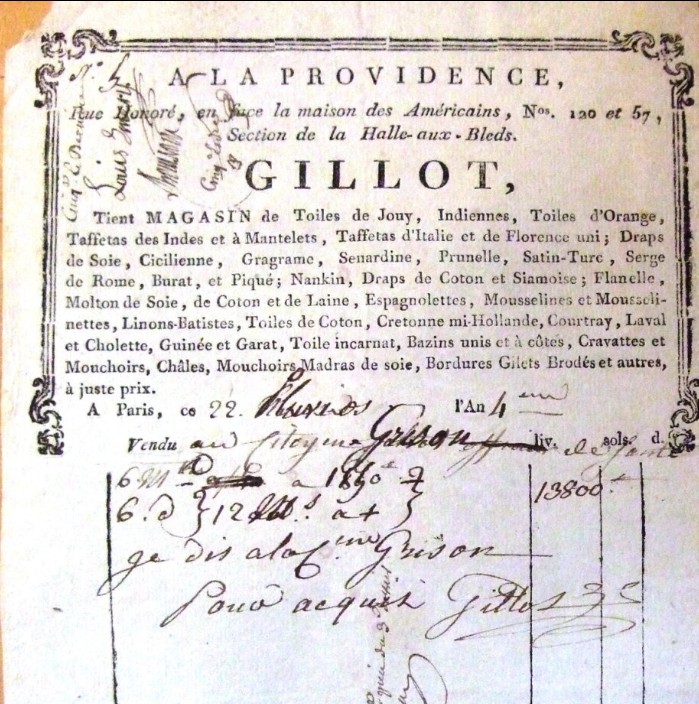 A LA PROVIDENCE,
Rue Honoré, en face la maison des Américains, Nos. 120 et 57,
Section de la Halle-aux-Bleds.
GILLOT,
Tient MAGASIN de Toiles de Jouy, Indiennes, Toiles d'Orange,
Taffetas des Indes et à Mantelets, Taffetas d'Italie et de Florence uni; Draps
de Soie, Cicilienne, Gragrame, Senardine, Prunelle, Satin-Turc, Serge
de Rome, Burat, et Piqué; Nankin, Draps de Coton et Siamoise; Flanelle,
Molton de Soie, de Coton et de Laine, Espagnolettes, Mousselines et Mousseli-
nettes, Linons-Batistes, Toiles de Coton, Cretonne mi-Hollande, Courtray, Laval
et Cholette, Guinée et Garat, Toile incarnat, Bazins unis et à côtés, Cravattes et
Mouchoirs, Châles, Mouchoirs Madras de soie, Bordures Gilets Brodés et autres,
à juste prix.
A Paris, ce 22. l'An 4
Vendu au Citoyenne Grison liv. sols. d.
6 a 1150 13800
6. d 12 a
Grison
Pour acquit Gillot